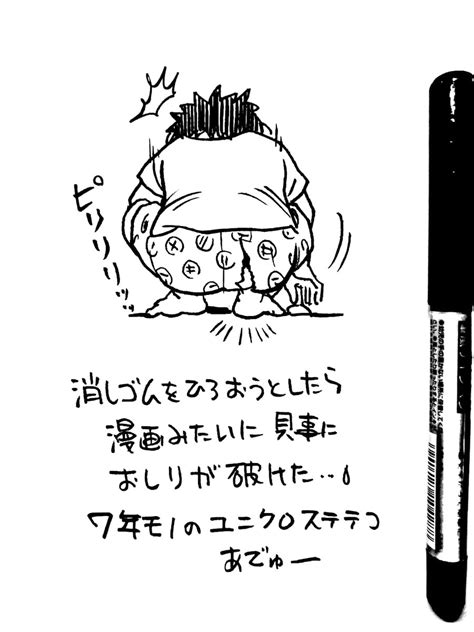 ピリリリッッ
消しゴムをひろおうとしたら
漫画みたいに見事に
おしりが破けた…。
7年モノのユニクロステテコ
あでゅー